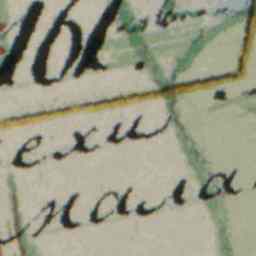 161.
ехи
мала.